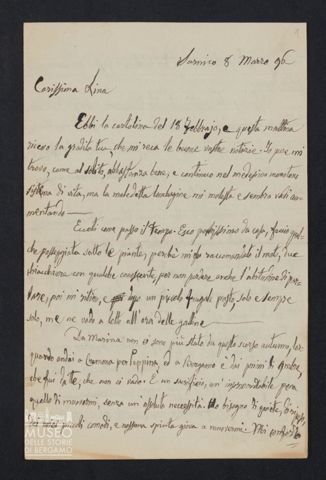 9
Sarnico 8 Marzo 96
Carissima Lina
Ebbi la cartolina del 18 Febbrajo, e questa mattina
ricevo la gradita tua che mi reca le buone vostre notizie. Io pure mi
trovo, come al solito, abbastanza bene, e continuo nel medesimo monotono
sistema di vita, ma la maledetta lombaggine mi molesta e sembra vada au-
mentando
Eccoti come passo il tempo. Esco pochissimo da casa, faccio qual-
che passeggiata sotto le piante, perchè mi fu raccomandato il moto, due
chiacchiere con qualche conoscente, per non perdere anche l'abitudine di par-
lare, poi mi ritiro, e dopo un piccolo frugale pasto, solo e sempre
solo, me ne vado a letto all'ora delle galline
Da Marina non ci sono più stato da questo scorso autunno, al-
quando andai a Cremona per Peppina, ed a Bergamo e dai primi di
che fui da te, che non ci vado. È un sacrificio, un
quello di muovermi, senza un assoluta necessità. Ho bisogno di quiete,
miei piccoli comodi, e nessuna spinta giova a muovermi.
MUSEO
DELLE STORIE
DI BERGAMO